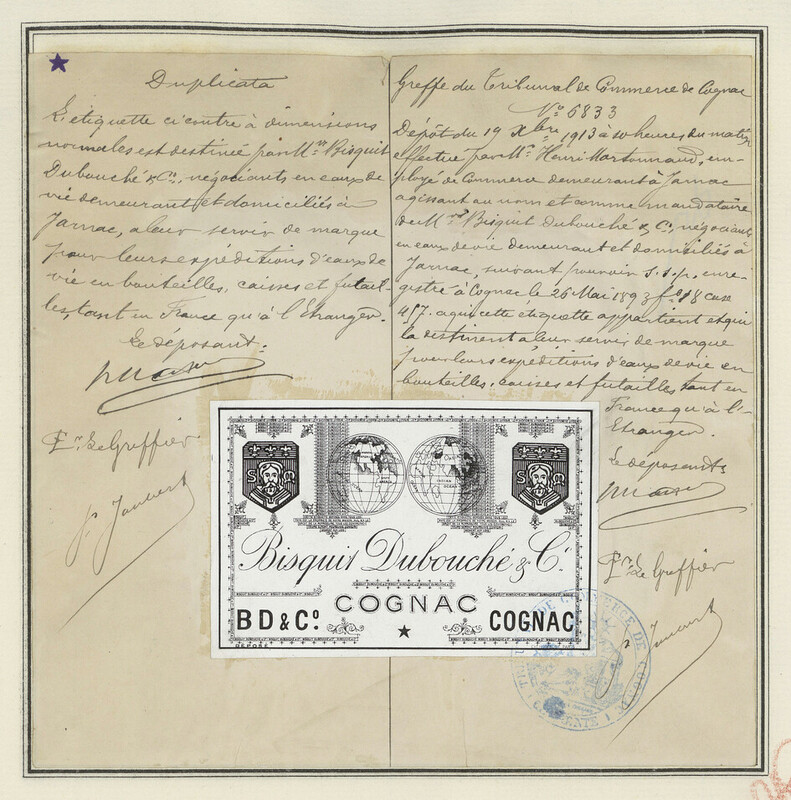 Duplicata
L'étiquette ci contre à dimensions
normales est destinée par Mrs Bisquit
Dubouché & Co, négociants en eaux de
vie demeurant et domiciliés à
Jarnac, à leur servir de marque
pour leurs expéditions d'eaux de
vie en bouteilles, caisses et futail-
les, tant en France qu'à l'Etranger.
Le déposant.
Le Greffier
Greffe du Tribunal de Commerce de Cognac
No 6833
Dépôt du 19 Xbre 1913 à 10 heures du matin
effectué par Mr Henri Martonnaud, em-
ployé de Commerce demeurant à Jarnac
agissant au nom et comme mandataire
de Mrs Bisquit Dubouché & Co, négociants
en eaux de vie demeurant et domiciliés à
Jarnac, suivant pouvoir s.s.p. enre-
gistré à Cognac le 26 Mai 1893 fo 18 case
457. à qui cette étiquette appartient et qui
la destinent à leur servir de marque
pour leurs expéditions d'eaux de vie en
bouteilles, caisses et futailles tant en
France qu'à l'-
Etranger.
Le déposant
Le Greffier
S M
S M
Bisquit Dubouché & Co.
COGNAC
BD & Co
COGNAC
DÉPOSÉ
TRIBUNAL DE COMMERCE DE COGNAC
CHARENTE